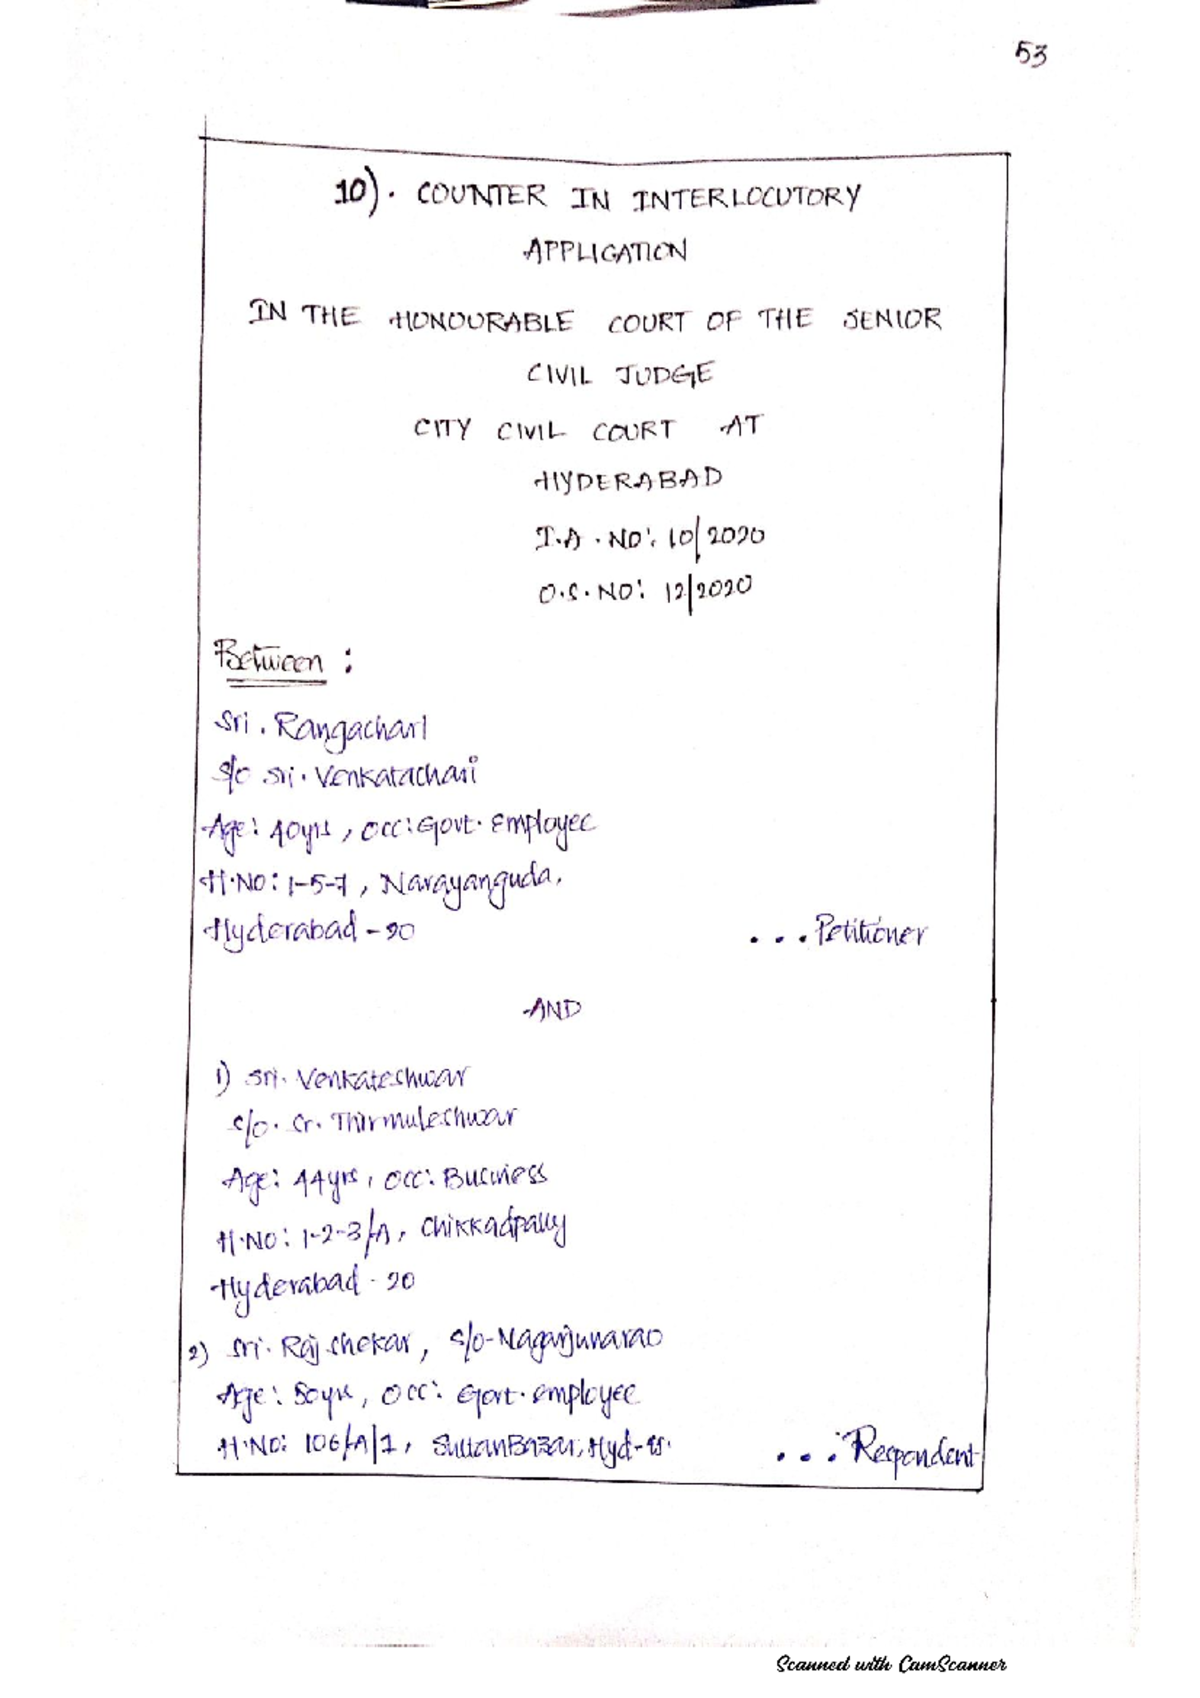 53
10). COUNTER IN INTERLOCUTORY
APPLICATION
IN THE HONOURABLE COURT OF THE SENIOR
CIVIL JUDGE
CITY CIVIL COURT AT
HYDERABAD
I.A. NO: 10/2020
O.S. NO: 12/2020
Between :
Sri. Rangachari
S/o Sri. Venkatachari
Age: 40yrs, Occ: Govt. Employee
H.No: 1-5-7, Narayanguda,
Hyderabad - 20
...Petitioner
AND
1) Sri. Venkateshwar
S/o. Sr. Thirmuleshwar
Age: 44yrs, Occ: Business
H.No: 1-2-3/A, Chikkadpally
Hyderabad - 20
2) Sri. Raj shekar, S/o-Nagarjunarao
Age: 50yrs, Occ: Govt. employee
H.No: 106/A/7, SultanBazar, Hyd-
...Respondent
Scanned with CamScanner